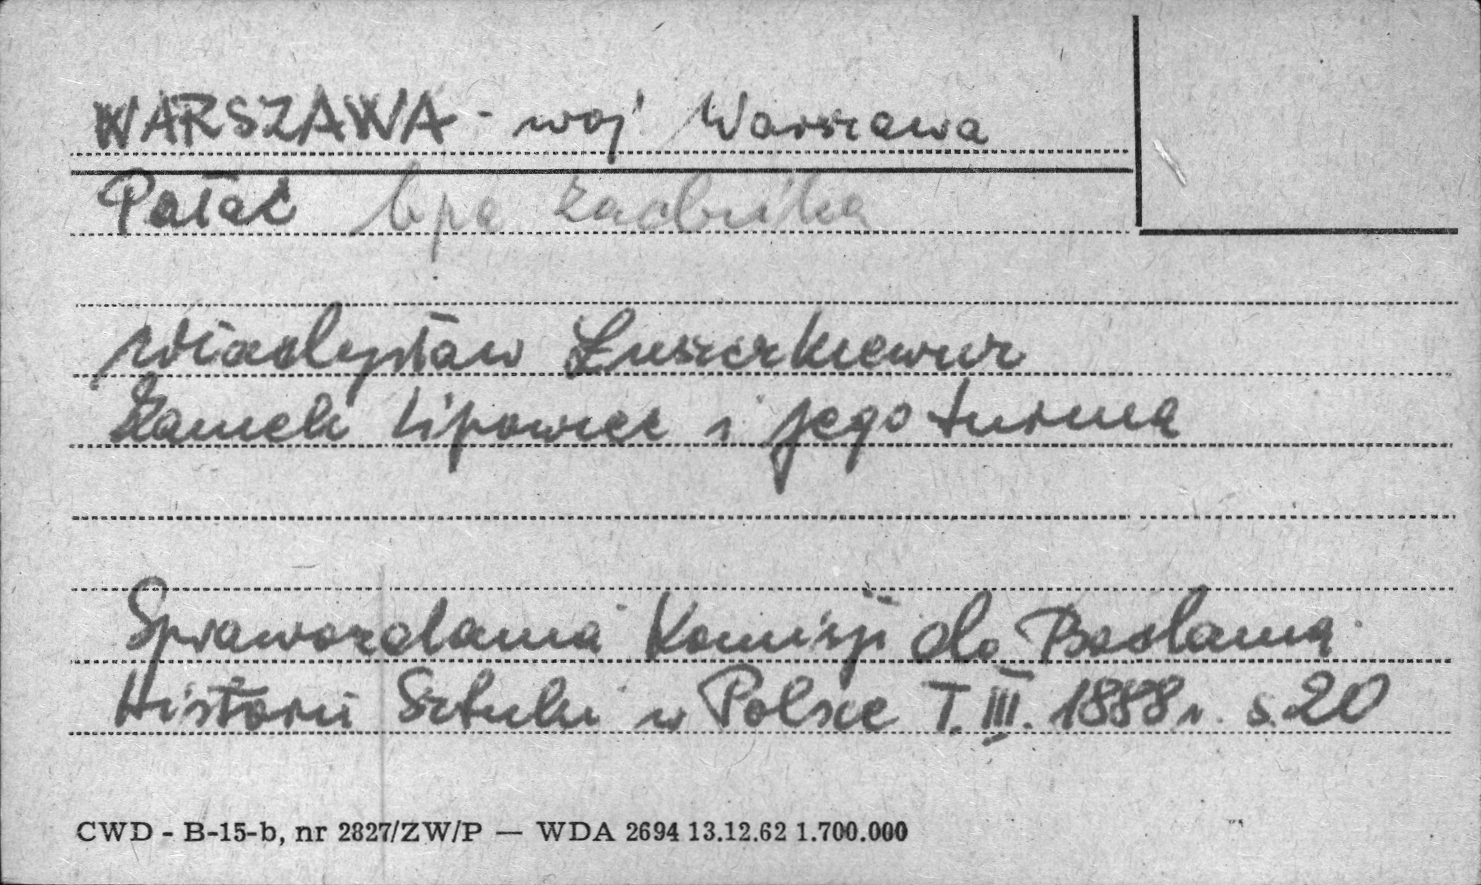 WARSZAWA - woj Warszawa
Pałac bpa Zadzika
Władysław Łuszczkiewicz
Zamek Lipowiec i jego turma
Sprawozdania Komisji do Badania
Historii Sztuki w Polsce T. III. 1888 r. s. 20
CWD - B-15-b, nr 2827/ZW/P — WDA 2694 13.12.62 1.700.000